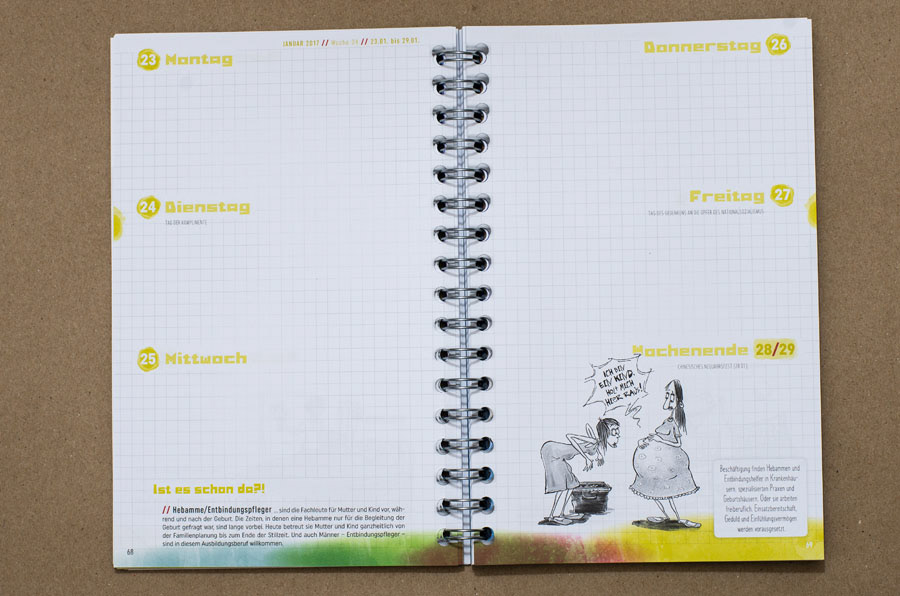 JANUAR 2017 // Woche 04 // 23.01. bis 29.01.
23 Montag
24 Dienstag
TAG DER KOMPLIMENTE
25 Mittwoch
Ist es schon da?!
// Hebamme/Entbindungspfleger ... sind die Fachleute für Mutter und Kind vor, wäh-
rend und nach der Geburt. Die Zeiten, in denen eine Hebamme nur für die Begleitung der
Geburt gefragt war, sind lange vorbei. Heute betreut sie Mutter und Kind ganzheitlich von
der Familienplanung bis zum Ende der Stillzeit. Und auch Männer – Entbindungspfleger –
sind in diesem Ausbildungsberuf willkommen.
68
Donnerstag 26
Freitag 27
TAG DES GEDENKENS AN DIE OPFER DES NATIONALSOZIALISMUS
Wochenende 28/29
CHINESISCHES NEUJAHRSFEST (28.01.)
ICH BIN
EIN KIND.
HOLT MICH
HIER RAUS!
Beschäftigung finden Hebammen und
Entbindungshelfer in Krankenhäu-
sern, spezialisierten Praxen und
Geburtshäusern. Oder sie arbeiten
freiberuflich. Einsatzbereitschaft,
Geduld und Einfühlungsvermögen
werden vorausgesetzt.
69